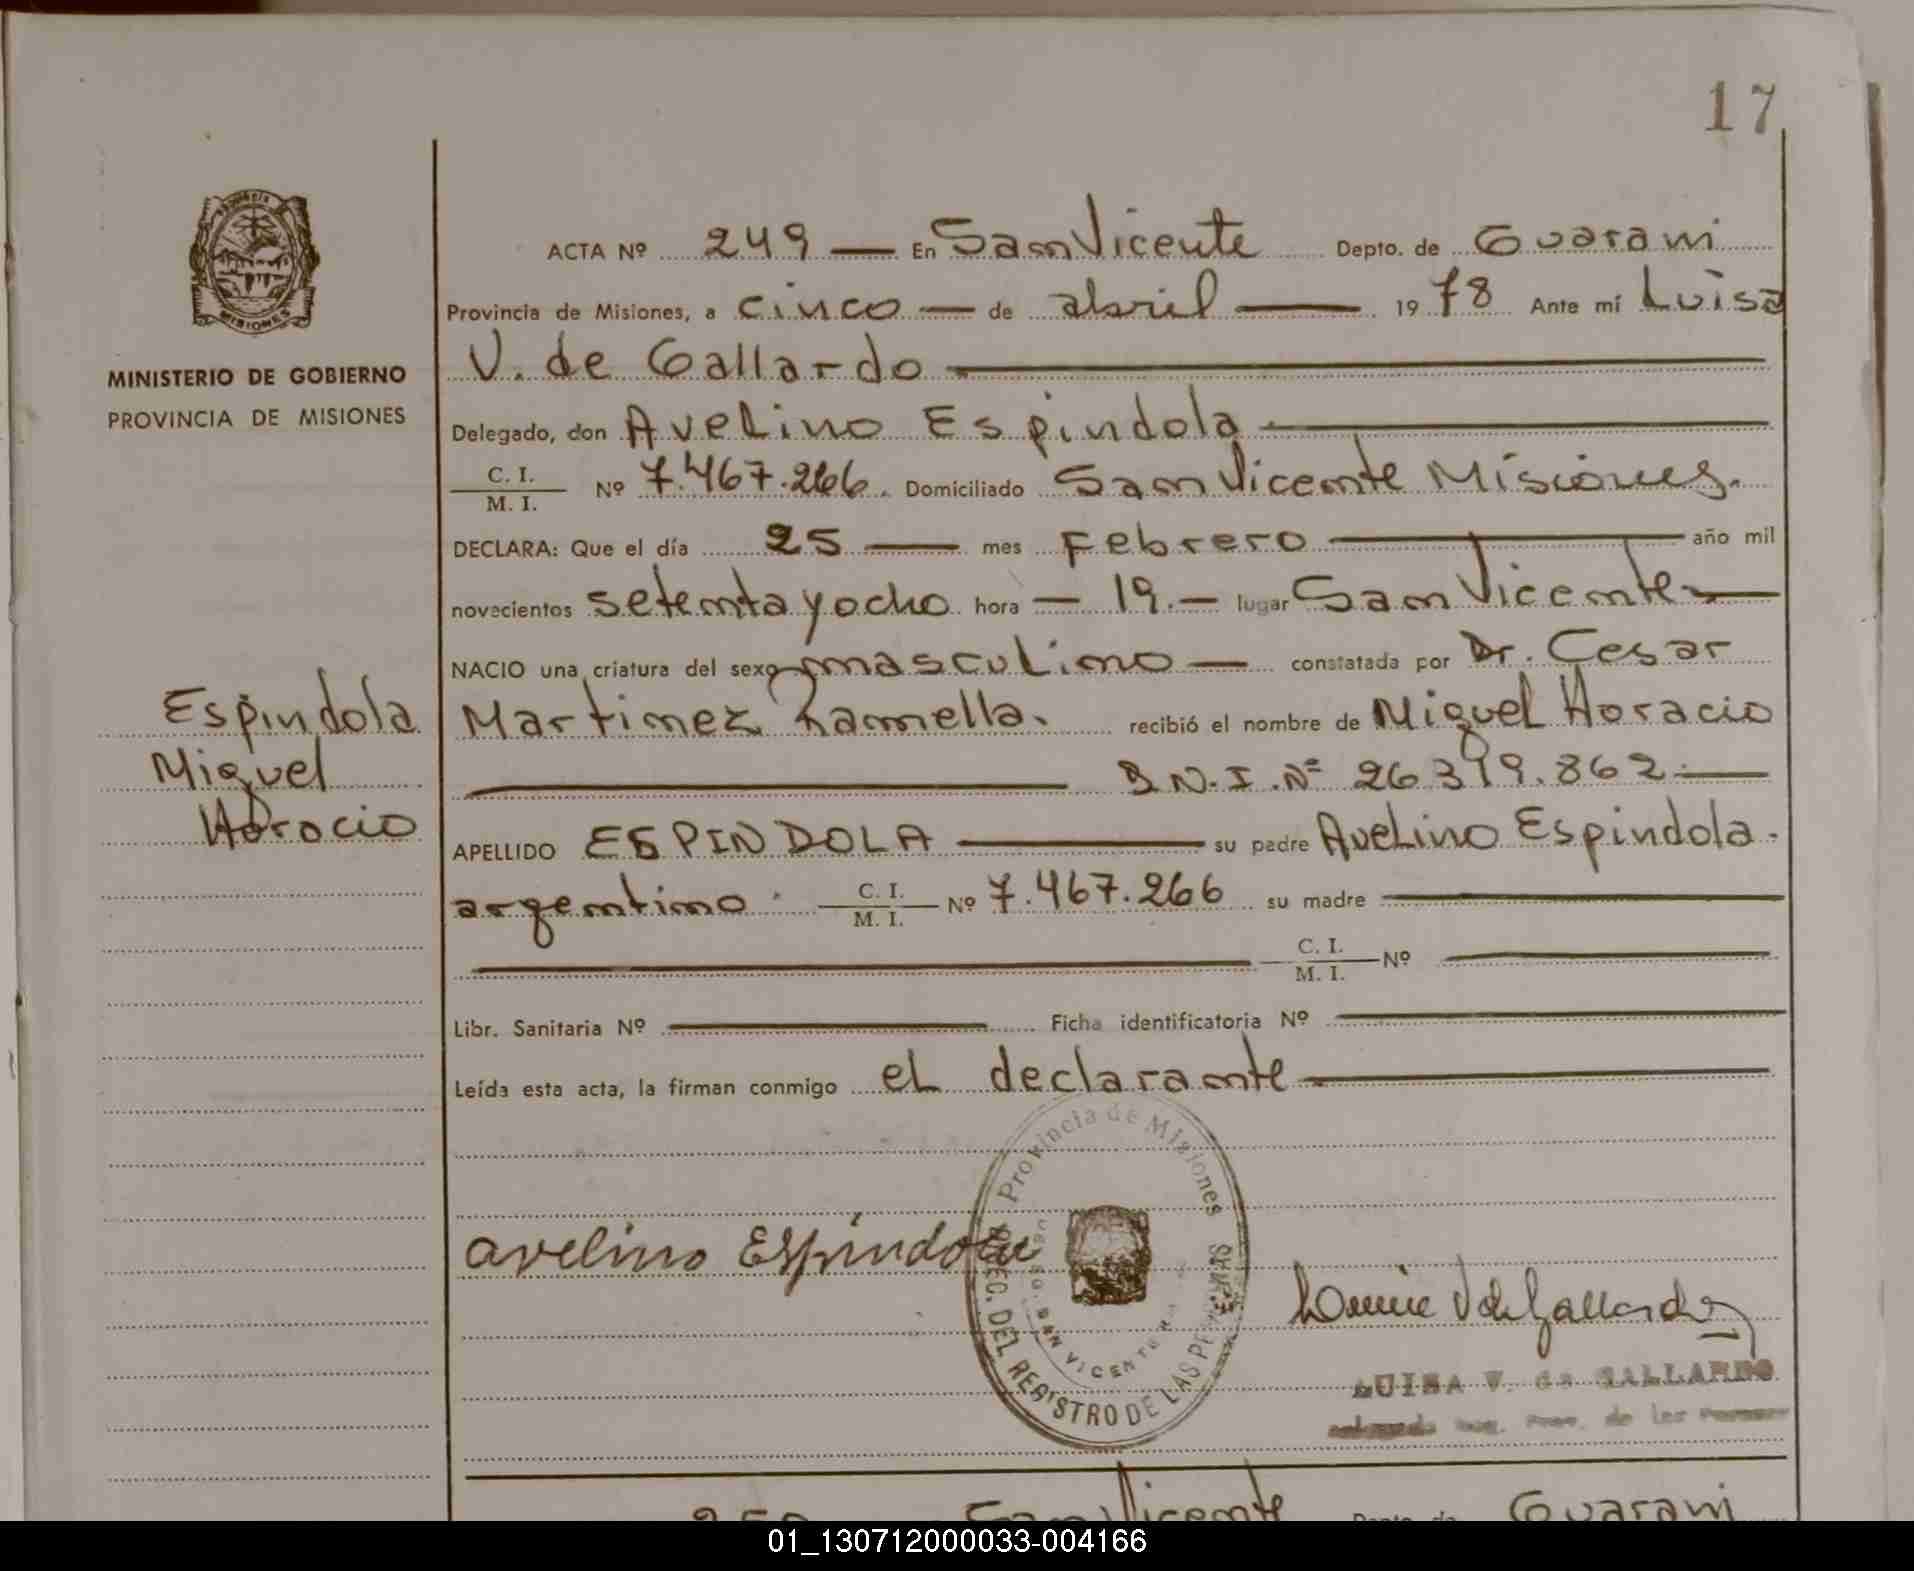 17
MISIONES
MINISTERIO DE GOBIERNO
PROVINCIA DE MISIONES
Espindola
Miguel
Horacio
ACTA Nº 249 — En San Vicente Depto. de Guarani
Provincia de Misiones, a cinco — de abril — 1978 Ante mí Luisa
V. de Gallardo
Delegado, don Avelino Espindola
C. I.
M. I. Nº 7.467.266. Domiciliado San Vicente Misiones.
DECLARA: Que el día 25 — mes Febrero — año mil
novecientos setenta y ocho hora — 19. — lugar San Vicente —
NACIO una criatura del sexo masculino — constatada por Dr. Cesar
Martinez Ramella. recibió el nombre de Miguel Horacio
D.N.I. Nº 26.319.862 —
APELLIDO ESPINDOLA — su padre Avelino Espindola.
argentino. C. I. / M. I. Nº 7.467.266 su madre —
C. I. / M. I. Nº
Libr. Sanitaria Nº — Ficha identificatoria Nº —
Leída esta acta, la firman conmigo el declarante —
Provincia de Misiones
DEL REGISTRO DE LAS PERSONAS
SAN VICENTE
Avelino Espindola
LUISA V. de GALLARDO
de las
250 San Vicente Depto. de Guarani
01_130712000033-004166